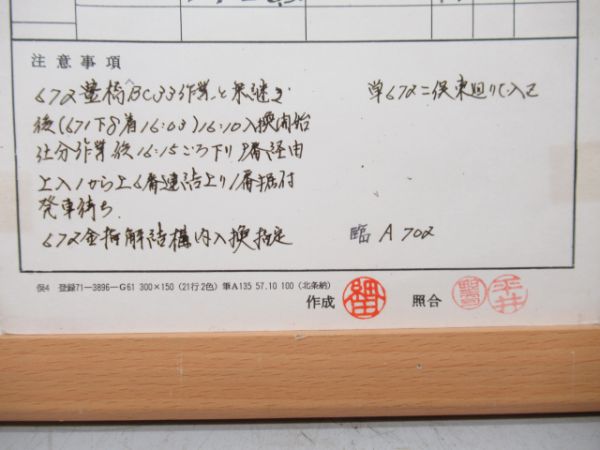 注意事項
672豊橋BC33作業と乗継ぎ
後(671下8着16:03)16:10入換開始
仕分作業後16:15ごろ下り9番経由
上入1から上6番連結上り1番据付
発車待ち.
672金指解結構内入換指定
単672ニ俣東廻りC入区
臨 A 702
俣4 登録71-3896-G61 300×150 (21行2色) 筆A135 57.10 100 (北条納)
作成 細 照合 平井